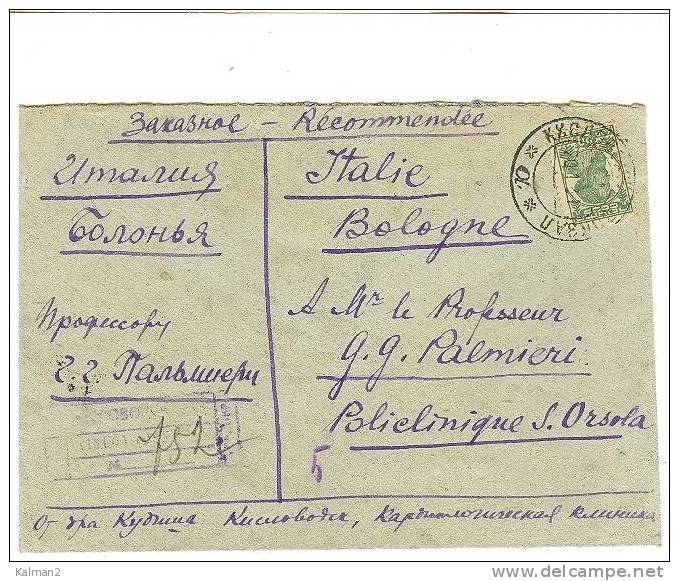 Заказное – Récommendée
Италия
Болонья
Профессору
Г. Г. Пальмиери
Italie
Bologne
A Mr le Professeur
G. G. Palmieri
Policlinique S. Orsola
№ 192
5
От д-ра Кисловодск, Кардиологическая клиника
Kalman2
www.delcampe.net